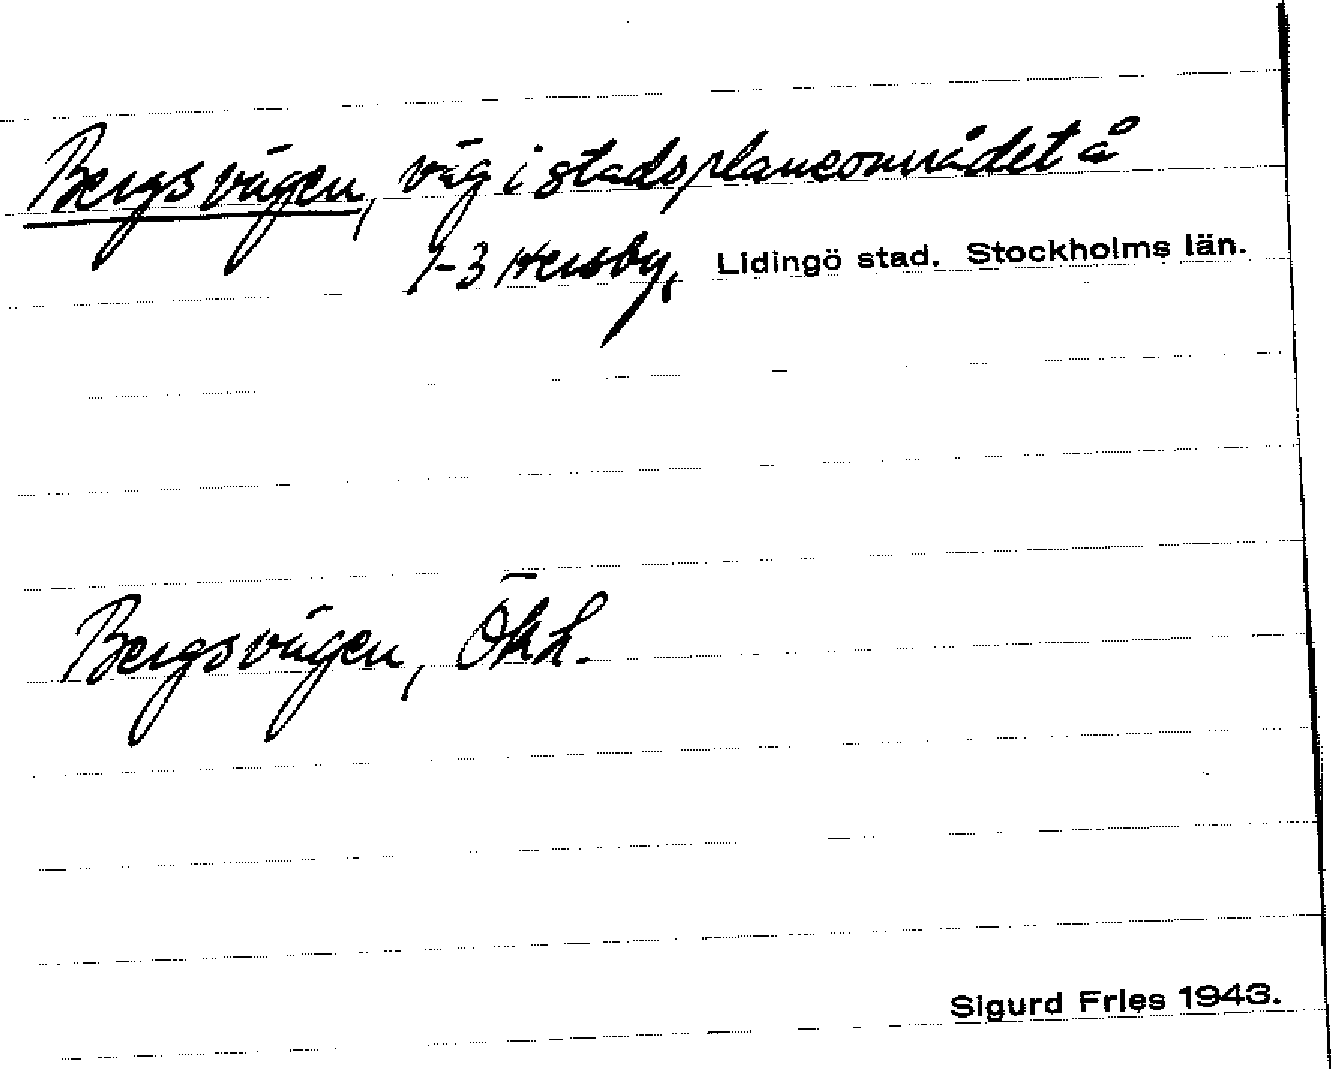 Bergsvägen, väg i stadsplaneområdet å
1-3 Hersby, Lidingö stad. Stockholms län.
Bergsvägen, Ökh.
Sigurd Fries 1943.